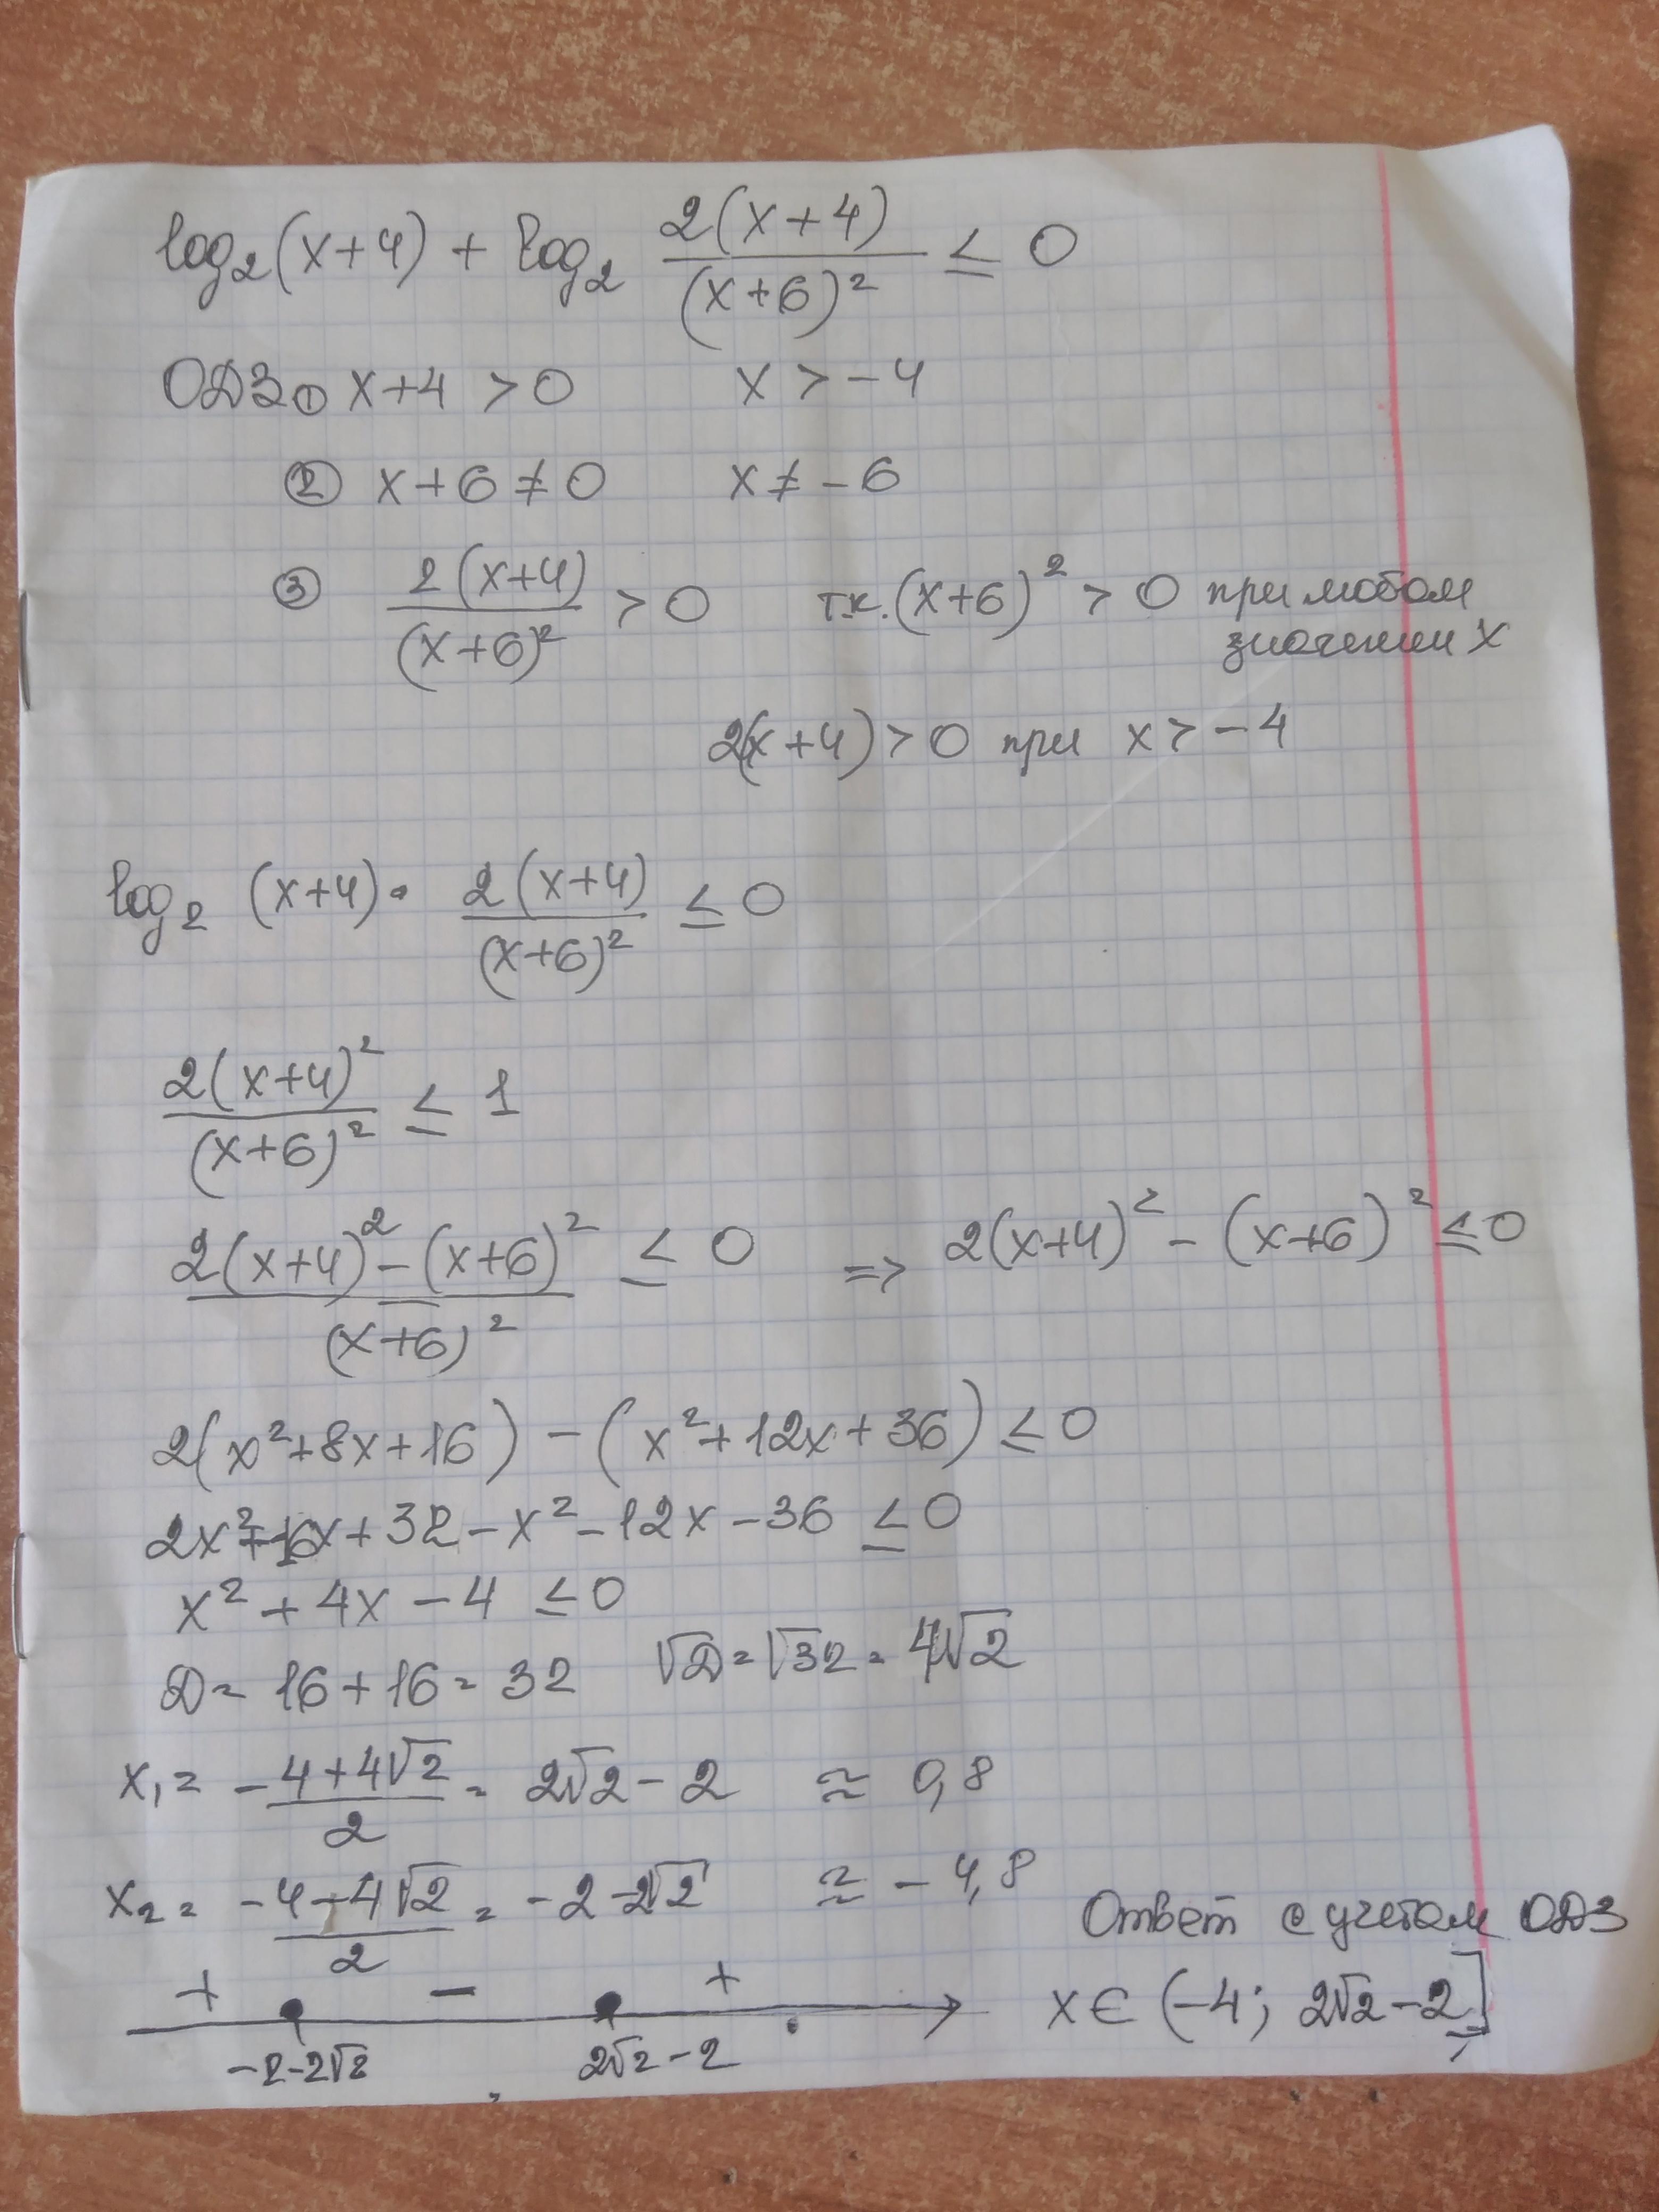 log₂(x+4) + log₂ 2(x+4)/(x+6)² ≤ 0
ОДЗ ① x+4 > 0 x > -4
② x+6 ≠ 0 x ≠ -6
③ 2(x+4)/(x+6)² > 0 т.к. (x+6)² > 0 при любом
значении x
2(x+4) > 0 при x > -4
log₂ (x+4) · 2(x+4)/(x+6)² ≤ 0
2(x+4)²/(x+6)² ≤ 1
(2(x+4)² - (x+6)²)/(x+6)² ≤ 0 => 2(x+4)² - (x+6)² ≤ 0
2(x²+8x+16) - (x²+12x+36) ≤ 0
2x²+16x+32-x²-12x-36 ≤ 0
x²+4x-4 ≤ 0
D = 16+16 = 32 √D = √32 = 4√2
x₁ = (-4+4√2)/2 = 2√2-2 ≈ 0,8
x₂ = (-4-4√2)/2 = -2-2√2 ≈ -4,8
Ответ с учетом ОДЗ
+ - +
x ∈ (-4; 2√2-2]
-2-2√2 2√2-2